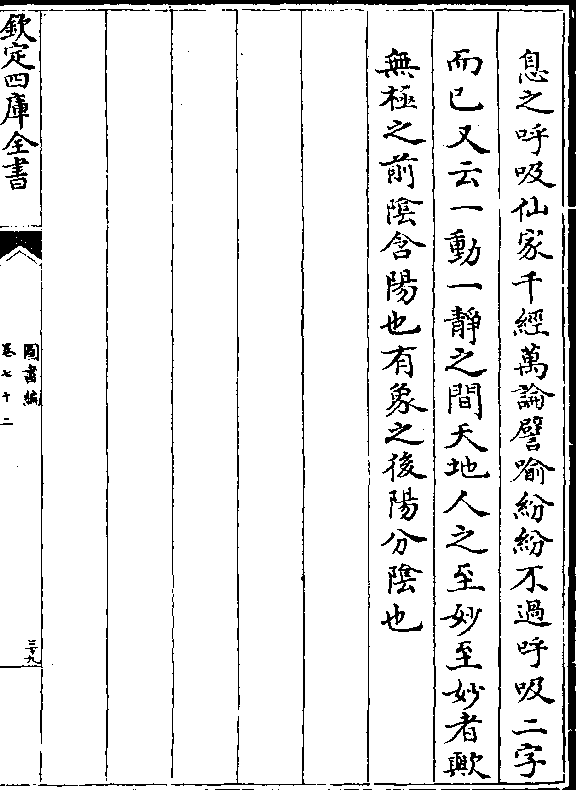 息之呼吸仙家千經萬論譬喻紛紛不過呼吸二字
而已又云一動一靜之間天地人之至妙至妙者歟
無極之前陰含陽也有象之後陽分陰也
欽定四庫全書
圖書編
卷七十二
三十九